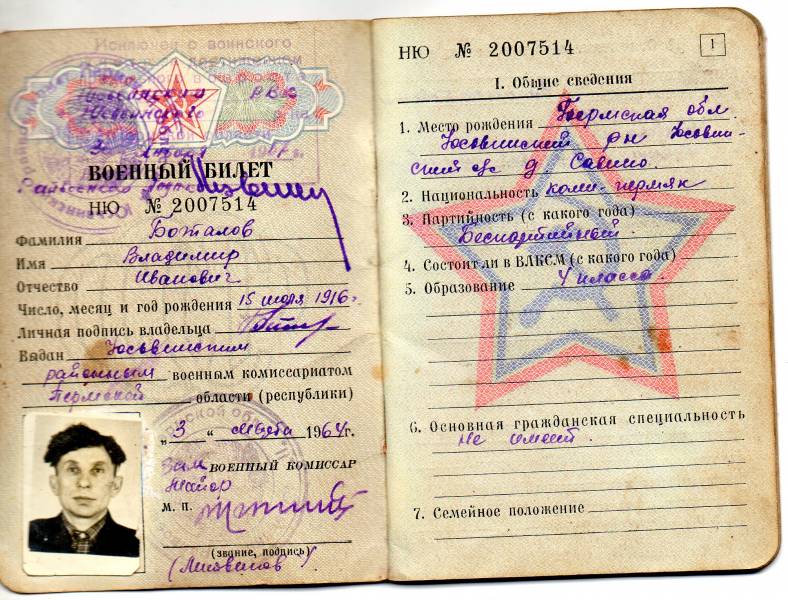 Исключен с воинского
ВОЕННЫЙ БИЛЕТ
НЮ № 2007514
Фамилия Боталов
Имя Владимир
Отчество Иванович
Число, месяц и год рождения 15 июля 1916 г.
Личная подпись владельца
Выдан Юсьвинским
районным военным комиссариатом
Пермской области (республики)
„3“ марта 1964 г.
Зам ВОЕННЫЙ КОМИССАР
Майор
М. П.
(звание, подпись)
НЮ № 2007514
1
I. Общие сведения
1. Место рождения Пермская обл
Юсьвинский рн Юсьвин-
ский с/с д. Савино.
2. Национальность коми-пермяк
3. Партийность (с какого года)
Беспартийный.
4. Состоит ли в ВЛКСМ (с какого года)
5. Образование 4 класса.
6. Основная гражданская специальность
не имеет.
7. Семейное положение